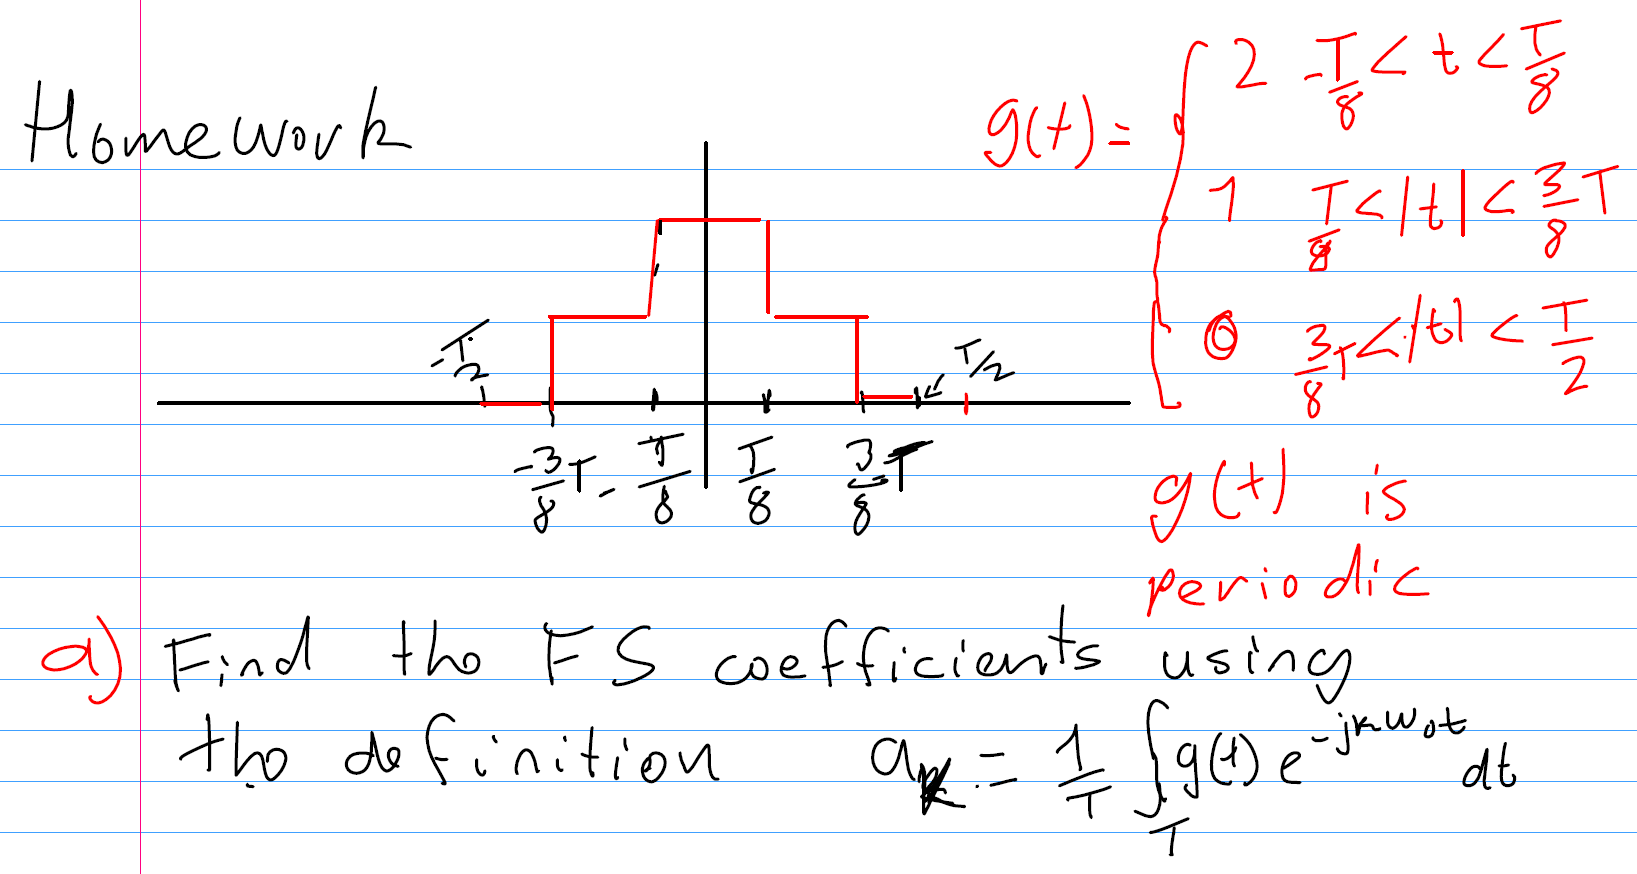 Homework
g(t) = { 2 -T/8 < t < T/8
1 T/8 < |t| < 3/8 T
0 3/8 T < |t| < T/2
-T/2
T/2
-3/8 T
-T/8
T/8
3/8 T
g(t) is
periodic
a) Find the FS coefficients using
the definition a_k = 1/T ∫_T g(t) e^{-jkω₀t} dt